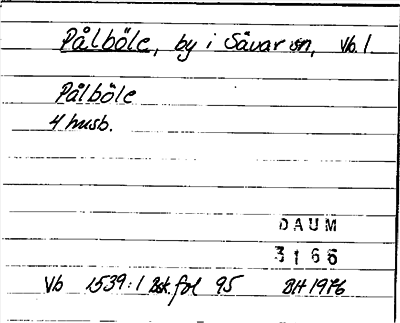 Pålböle, by i Sävar sn, Vb. l
Pålböle
4 husb.
DAUM
3166
Vb 1539:1 Bsk. fol 95 BH 1976